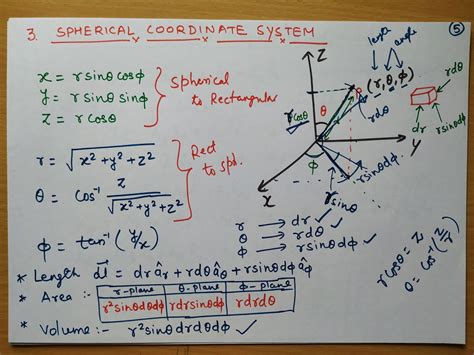 3. SPHERICAL COORDINATE SYSTEM
5
x = r sinθ cosϕ
y = r sinθ sinϕ
z = r cosθ
Spherical
to Rectangular
r = √(x² + y² + z²)
θ = cos⁻¹ z/√(x² + y² + z²)
ϕ = tan⁻¹ (y/x)
Rect
to sph.
length angle
Z
P
(r, θ, ϕ)
rcosθ
θ
r
rdθ
rdθ
dr
rsinθdϕ
Y
X
ϕ
rsinθ
rsinθdϕ
r → dr ✓
θ → rdθ ✓
ϕ → rsinθdϕ ✓
rcosθ = Z
θ = cos⁻¹(z/r)
* Length dl = dr âr + rdθ âθ + rsinθdϕ âϕ
* Area :- r-plane θ-plane ϕ-plane
r²sinθdθdϕ rdrsinθdϕ rdrdθ
* Volume :- r²sinθdrdθdϕ ✓